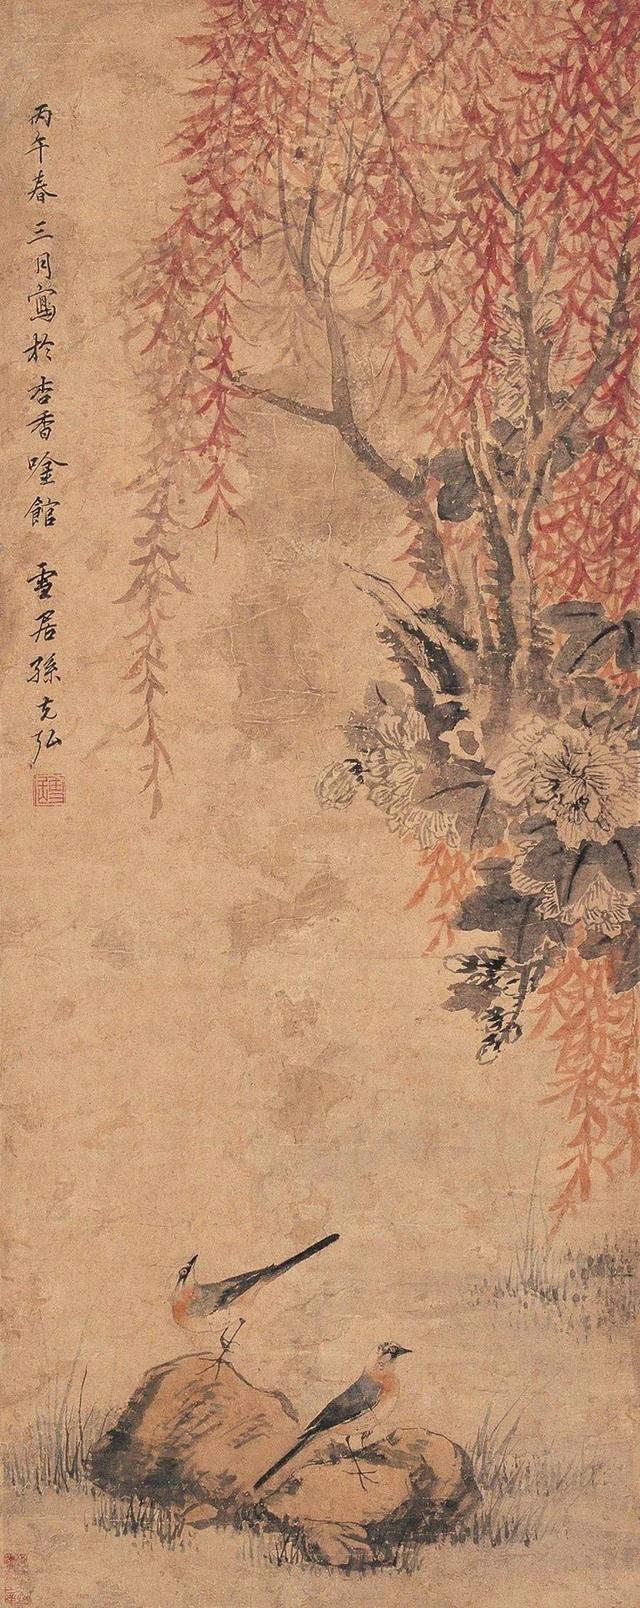 丙午春三月寫於杏香唫館 雪居孫克弘